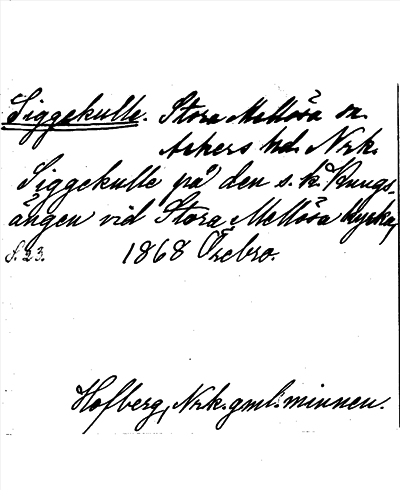 Siggekulle. Stora Mellösa sn.
Askers hd. Nrk.
Siggekulle på den s.k. Kungs-
ängen vid Stora Mellösa kyrka,
S. 23. 1868 Örebro.
Hofberg, Nrk. gml. minnen.